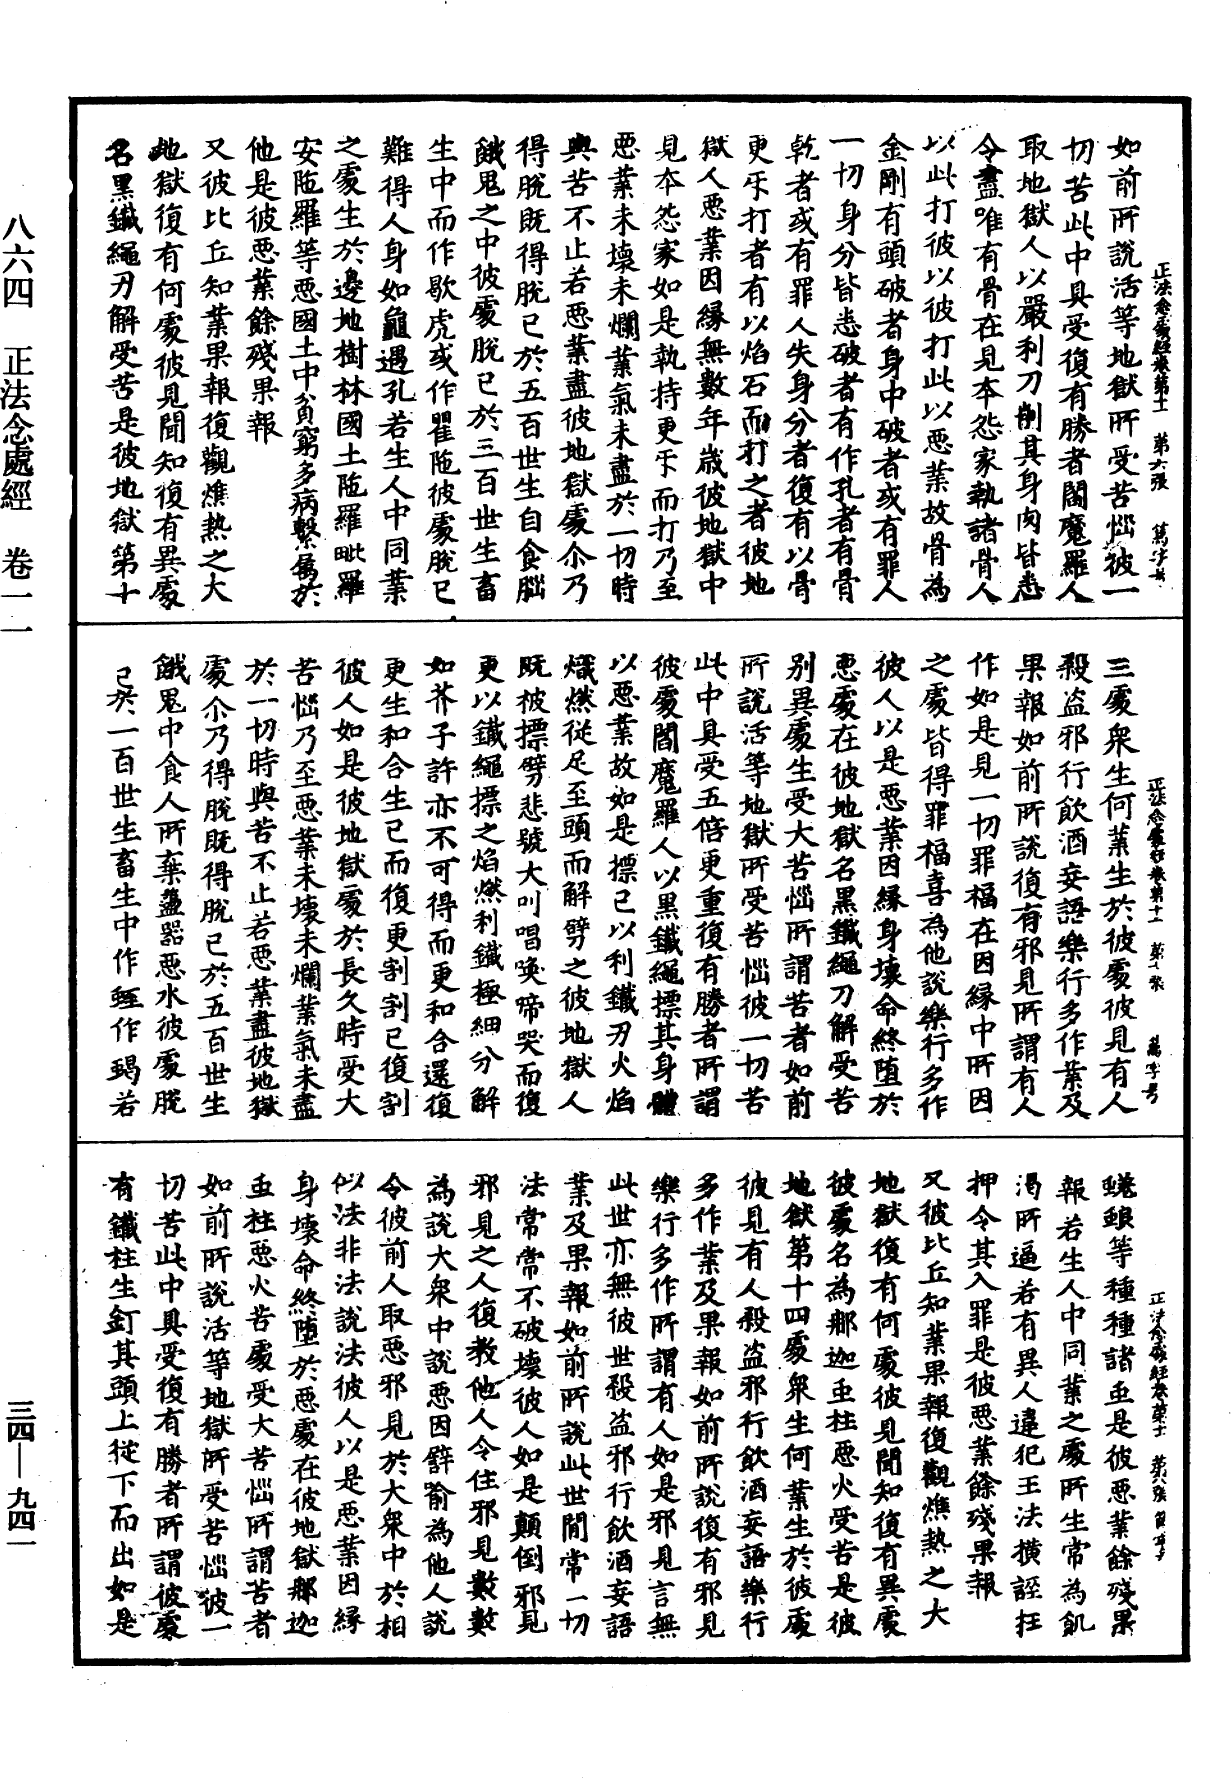 正法念處經卷第十一 第六張 篤字号
如前所說活等地獄所受苦惱彼一
切苦此中具受復有勝者閻魔羅人
取地獄人以嚴利刀削其身肉皆悉
令盡唯有骨在見本怨家執諸骨人
以此打彼以彼打此以惡業故骨為
金剛有頭破者身中破者或有罪人
一切身分皆悉破者有作孔者有骨
乾者或有罪人失身分者復有以骨
更牙打者有以焰石而打之者彼地
獄人惡業因緣無數年歲彼地獄中
見本怨家如是執持更牙而打乃至
惡業未壞未爛業氣未盡於一切時
與苦不止若惡業盡彼地獄處尒乃
得脫既得脫已於五百世生自食腦
餓鬼之中彼處脫已於三百世生畜
生中而作歇虎或作瞿陁彼處脫已
難得人身如龜遇孔若生人中同業
之處生於邊地樹林國土陁羅毗羅
安陁羅等惡國土中貧窮多病繫屬於
他是彼惡業餘殘果報
又彼比丘知業果報復觀燋熱之大
地獄復有何處彼見聞知復有異處
名黑鐵繩刃解受苦是彼地獄第十
正法念處經卷第十一 第七張 篤字号
三處衆生何業生於彼處彼見有人
殺盜邪行飲酒妄語樂行多作業及
果報如前所說復有邪見所謂有人
作如是見一切罪福在因緣中所因
之處皆得罪福喜為他說樂行多作
彼人以是惡業因緣身壞命終墮於
惡處在彼地獄名黑鐵繩刀解受苦
別異處生受大苦惱所謂苦者如前
所說活等地獄所受苦惱彼一切苦
此中具受五倍更重復有勝者所謂
彼處閻魔羅人以黑鐵繩摽其身體
以惡業故如是摽已以利鐵刃火焰
熾燃從足至頭而解劈之彼地獄人
既被摽劈悲號大叫唱喚啼哭而復
更以鐵繩摽之焰燃利鐵極細分解
如芥子許亦不可得而更和合還復
更生和合生已而復更割割已復割
彼人如是彼地獄處於長久時受大
苦惱乃至惡業未壞未爛業氣未盡
於一切時與苦不止若惡業盡彼地獄
處尒乃得脫既得脫已於五百世生
餓鬼中食人所棄盪器惡水彼處脫
已於一百世生畜生中作蛭作蝎若
正法念處經卷第十一 第八張 篤字号
蟣蝨等種種諸虫是彼惡業餘殘果
報若生人中同業之處所生常為飢
渴所逼若有異人違犯王法橫誣抂
押令其入罪是彼惡業餘殘果報
又彼比丘知業果報復觀燋熱之大
地獄復有何處彼見聞知復有異處
彼處名為那迦虫柱惡火受苦是彼
地獄第十四處衆生何業生於彼處
彼見有人殺盜邪行飲酒妄語樂行
多作業及果報如前所說復有邪見
樂行多作所謂有人如是邪見言無
此世亦無彼世殺盜邪行飲酒妄語
業及果報如前所說此世閒常一切
法常常不破壞彼人如是顛倒邪見
邪見之人復教他人令住邪見數數
為說大衆中說惡因辟喻為他人說
令彼前人取惡邪見於大衆中於相
似法非法說法彼人以是惡業因緣
身壞命終墮於惡處在彼地獄那迦
虫柱惡火苦處受大苦惱所謂苦者
如前所說活等地獄所受苦惱彼一
切苦此中具受復有勝者所謂彼處
有鐵柱生釘其頭上從下而出如是
八六四 正法念處經 卷一一
三四—九四一